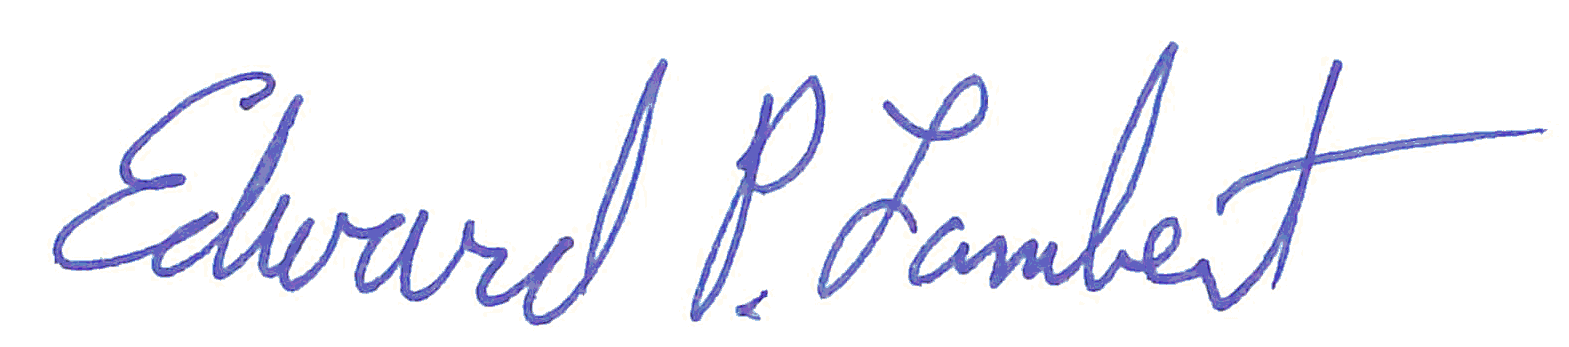 Edward P. Lambert